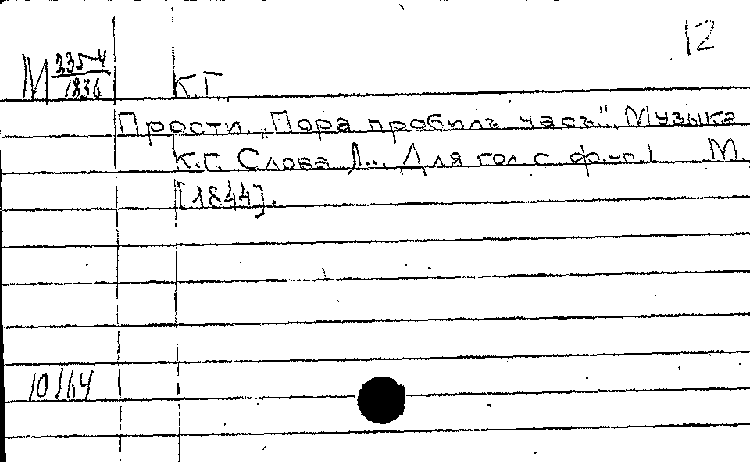 12
М 235-4/1836
К.Г.
Прости „Пора пробилъ часъ". Музыка
К.Г. Слова Л... Для гол. с ф.-п. М
[1844].
10164